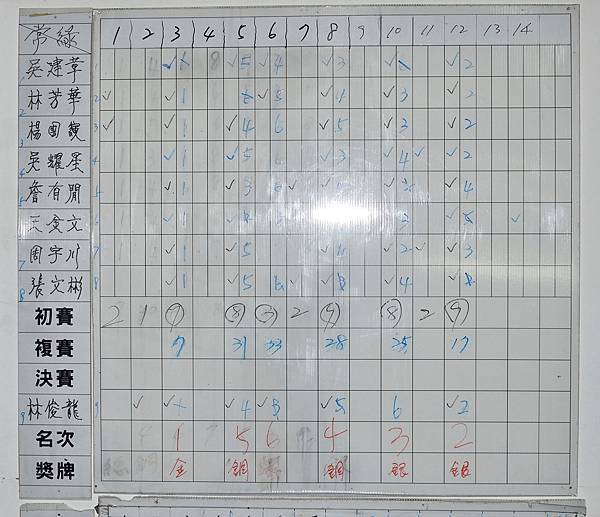 常緑 1 2 3 4 5 6 7 8 9 10 11 12 13 14
1 吳建革 ✓ ✓5 ✓4 ✓3 ✓ ✓2
2 林芳華 2✓ ✓1 ✓5 ✓ ✓3 ✓2
3 楊 3✓ ✓1 ✓4 6 ✓5 ✓3 ✓2
4 吳耀星 4 ✓1 ✓5 ✓3 ✓4 ✓ ✓2
5 詹有閒 ✓1 ✓3 ✓ ✓ ✓4
王文 6 ✓1 ✓ 3 ✓ 3 ✓ ✓
7 周宇川 7 ✓1 ✓5 ✓ ✓2 ✓ ✓3
8 張文彬 8 ✓1 ✓5 6 ✓ ✓ ✓4 ✓
初賽 2 1 ⑨ ⑧ ③ 2 ⑨ ⑧ 2 ⑨
複賽 7 31 33 28 25 17
決賽
9 林俊龍 9 ✓ ✓ ✓4 ✓3 ✓5 6 ✓2
名次 1 5 6 4 3 2
獎牌 金 銅 銅 銀 銀